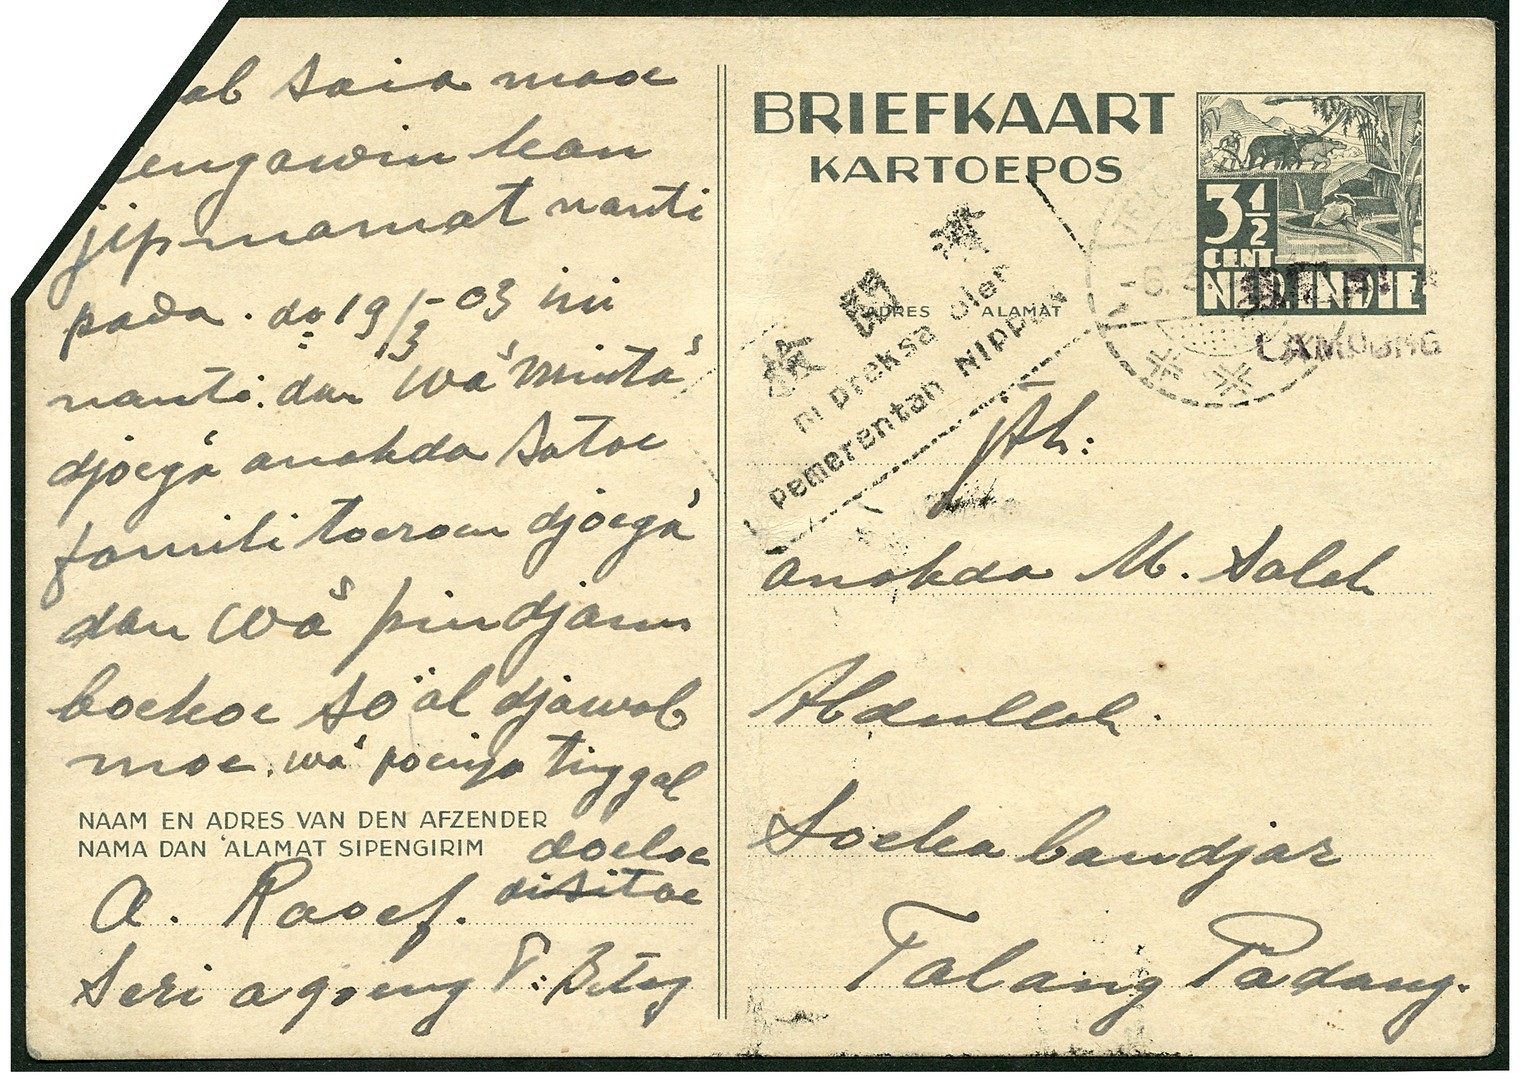 saia maoe
kan
jip mamat nanti
pada. do 19/3-03 ini
nanti. dan Wa' minta'
djoega' anakda satoe
famili toeroen djoega'
dan Wa' pindjam
boekoe so'al djawab
moe. wa' poenja tinggal
doeloe
disitoe
NAAM EN ADRES VAN DEN AFZENDER
NAMA DAN 'ALAMAT SIPENGIRIM
A. Raoef.
Seri agoeng
BRIEFKAART
KARTOEPOS
3½
CENT
NED.INDIE
LAMPONG
ADRES 'ALAMAT
Di preksa oleh
Pemerentah Nippon
Jth:
anakda M. Saleh
Abdullah.
Soeka bandjar
Talang Padang.